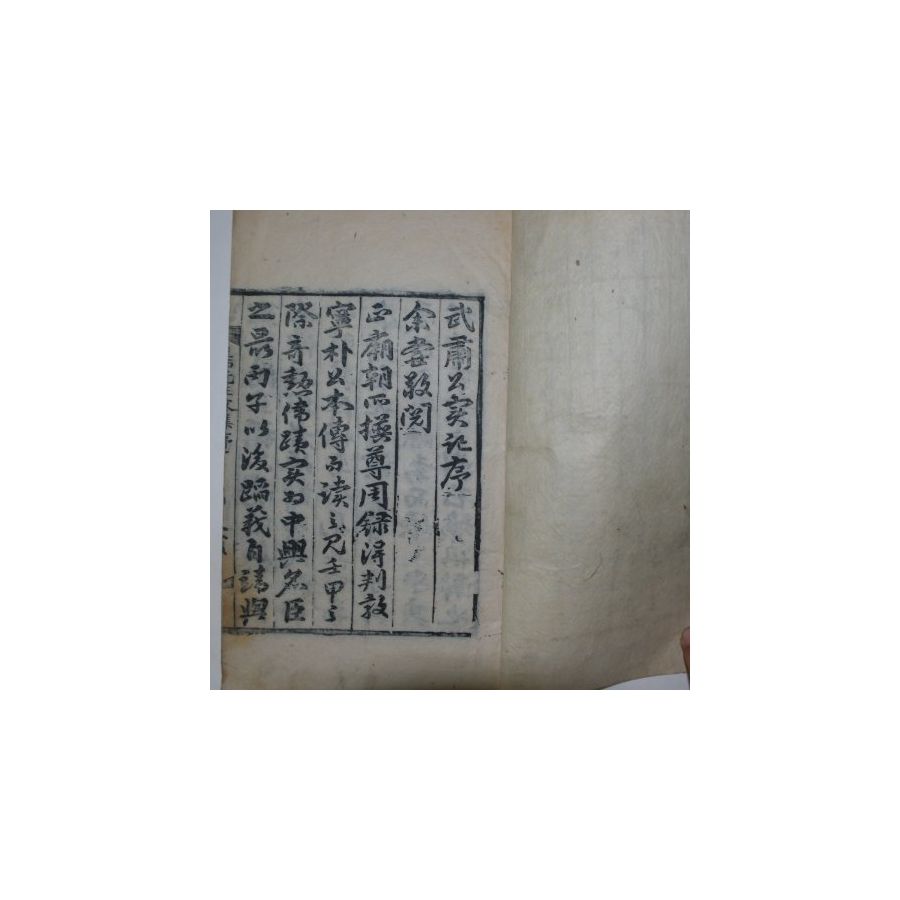 武肅公實記序
余嘗敬閱
正廟朝所撰尊周錄得判敦
寧朴公本傳而讀之見壬甲之
際奇勳偉蹟實為中興名臣
之最丙子以後蹈義自靖與